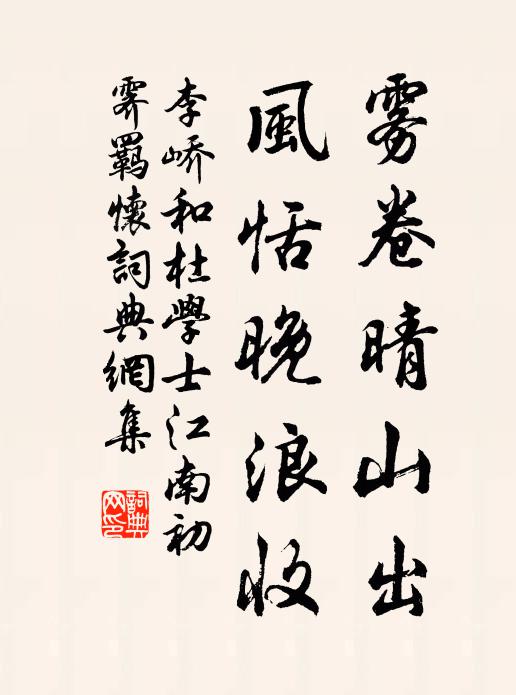 雾卷晴山出
風恬晚浪收
李嶠和杜學士江南初
霽羈懷詞典網集
詞典網印